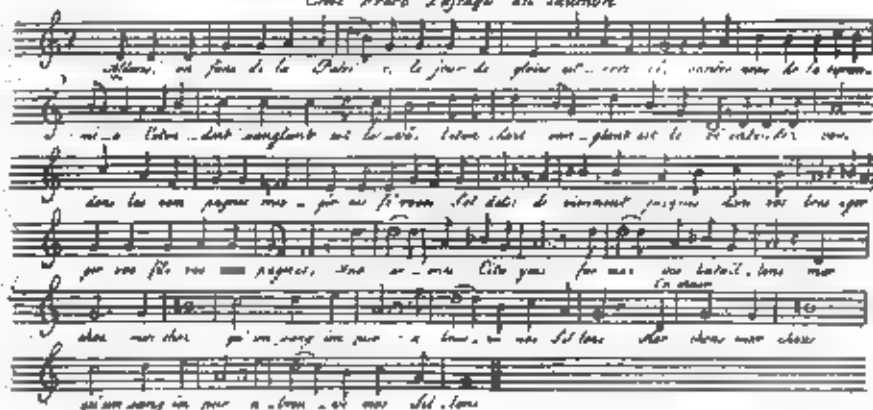 Allons, en fans de la Patri - e, le jour de gloire est ar - rivé, contre nous de la tyran
ni - e l'éten - dart sanglant est le - vé, l'éten - dart san - glant est le vé entendez vous
dans les com pagnes mu - gir ces fé roces Sol dats ils viennent jusques dans vos bras egor
ger vos fils vos pagnes, aux ar - mes Cito yens for mez vos batail - lons mar
chez mar chez qu'un sang im pur - a breu - ve nos Sil lons Mar chons mar chons
qu'un sang im pur a - breu - ve nos Sil - lons